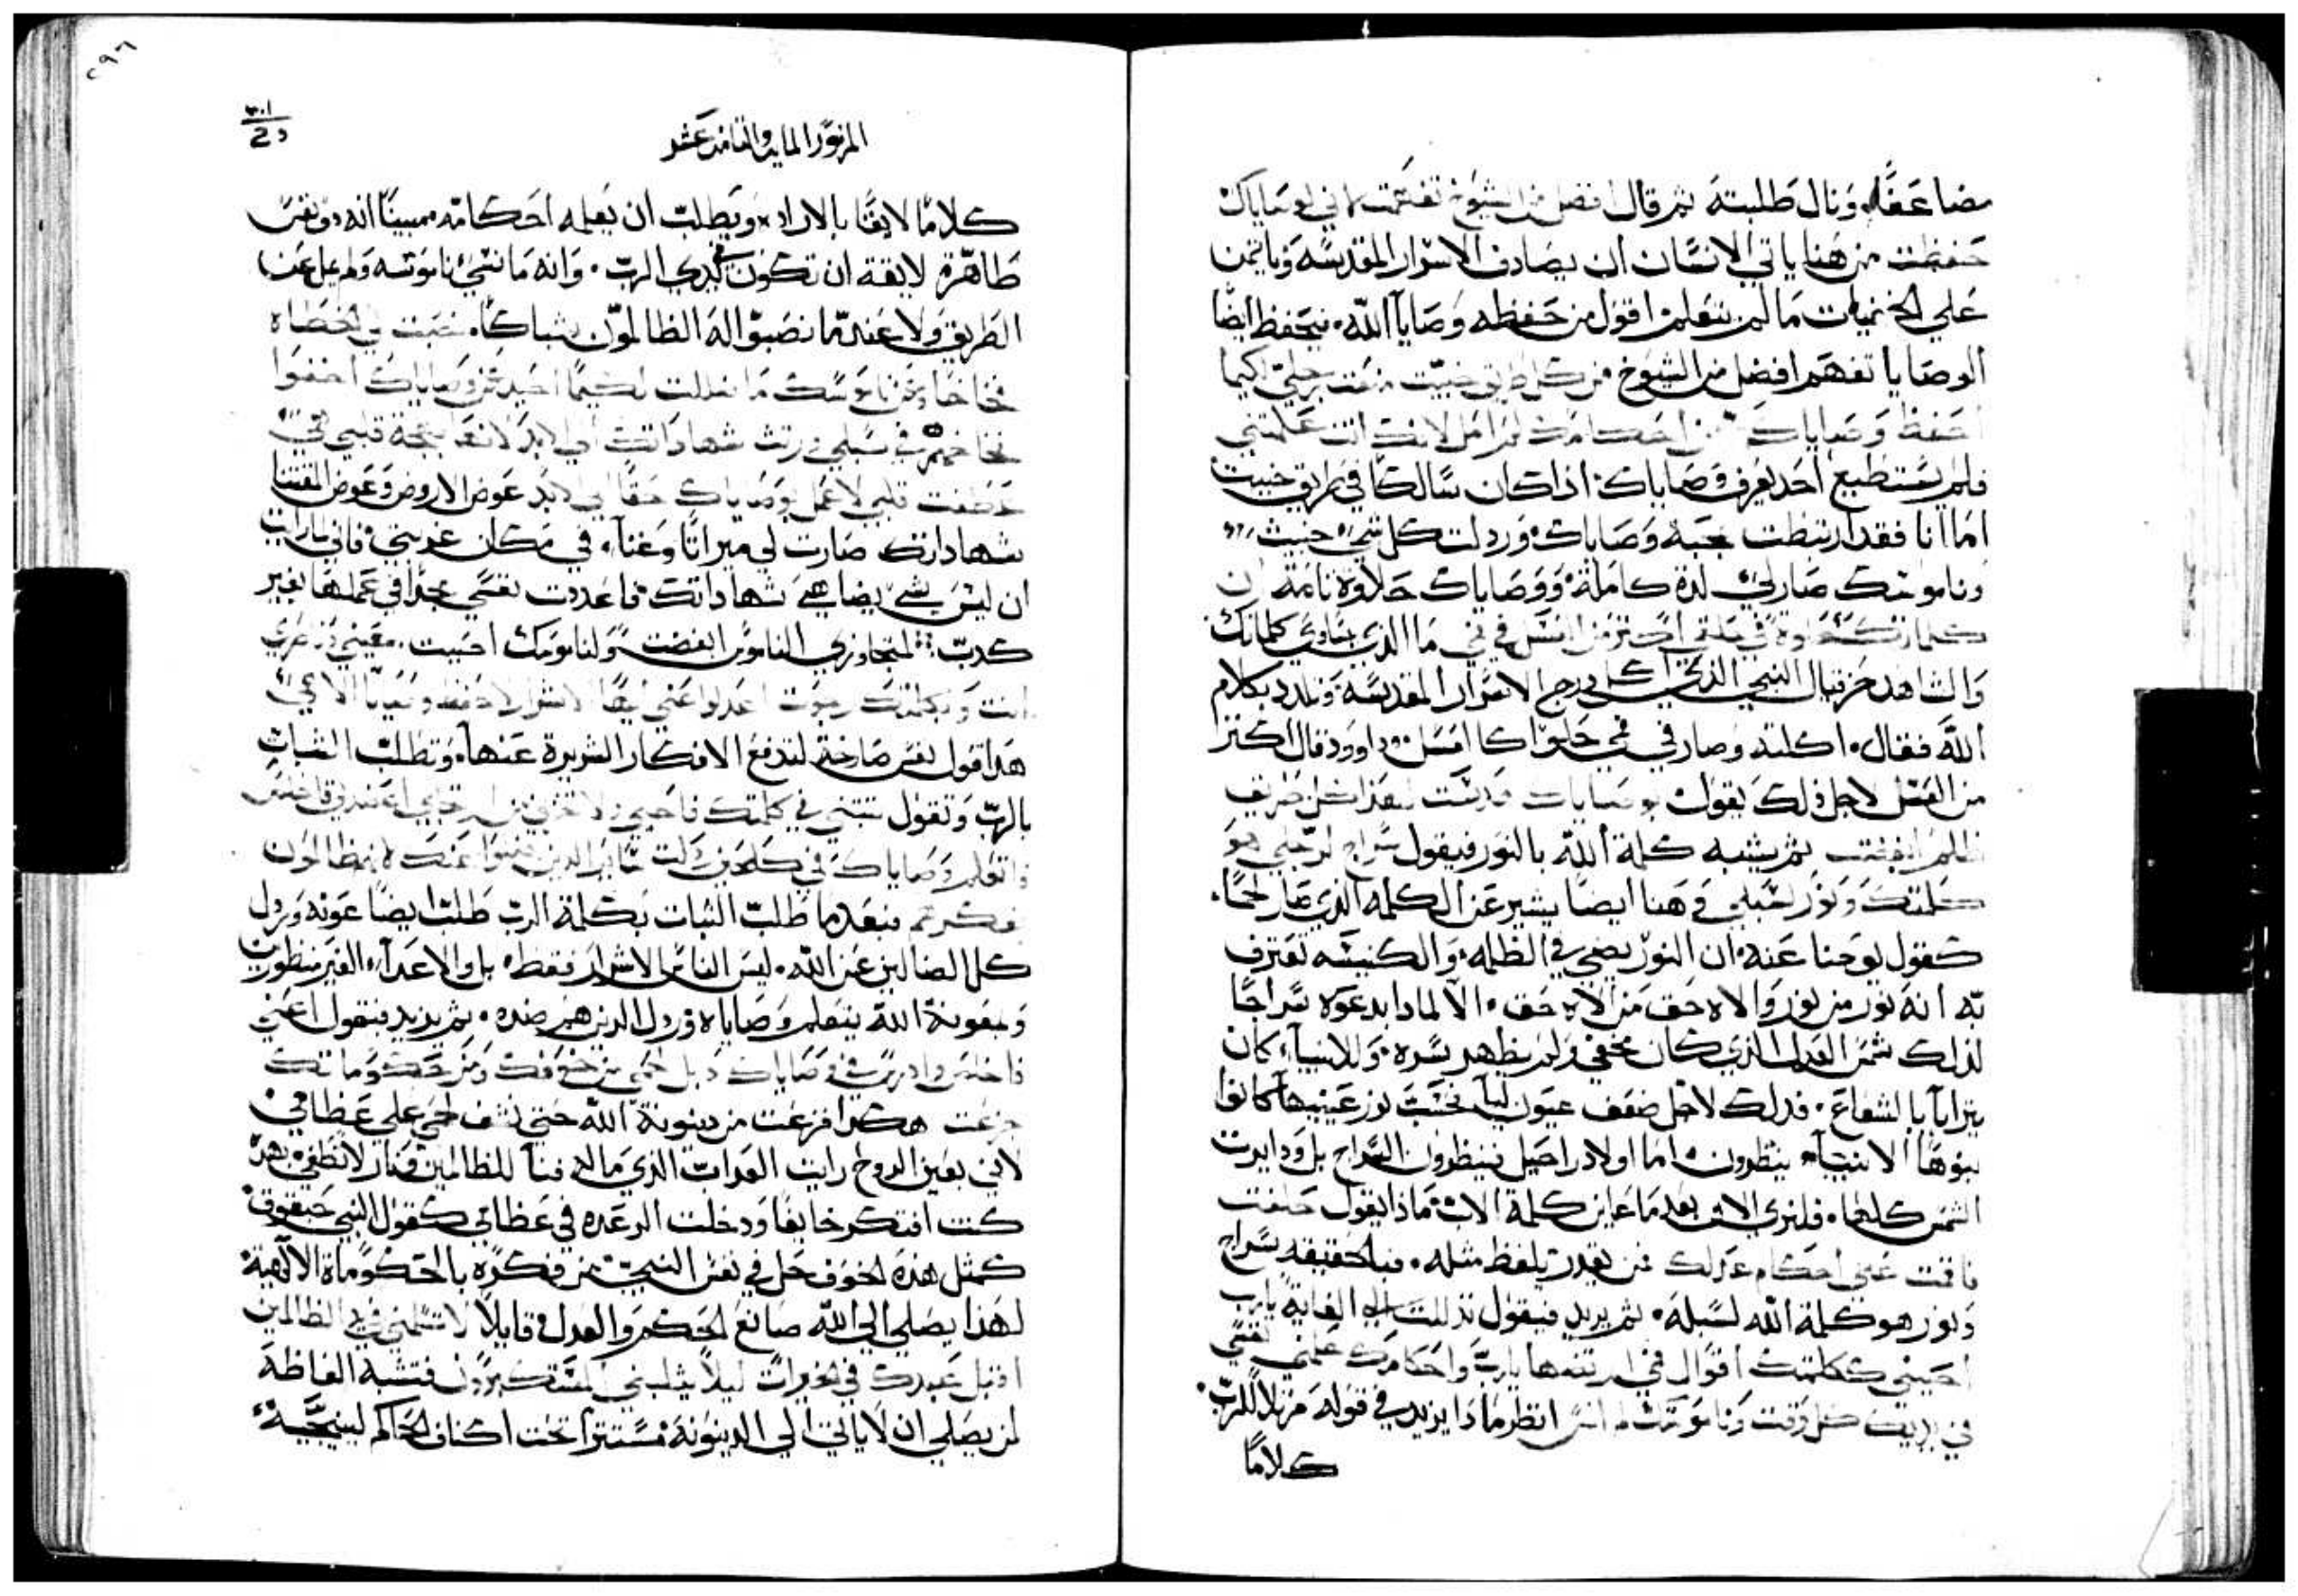 مضاعفًا، ونال طلبته ثم قال افضل من الشيوخ تفهمت لاني لوصاياك
حفظت من هنا ياتي الانسان ان يصادف الاسرار المقدسه ويايمن
علي الخفيات ما لم يتعلم اقول من حفظه وصايا الله، فيحفظ ايضًا
الوصايا تفهم افضل من الشيوخ من كل طريق خبيث منعت رجلي لكيما
احفظ وصاياك من احكامك لم امل لانك انت علمتني
فلم يستطيع احد يعرف وصاياك، اذا كان سالكًا في طريق خبيث
اما انا فقد ارتبطت بمحبة وصاياك، وردلت كل شي خبيث
وناموسك صار لي لدة كاملة، ووصاياك حلاوة تامه ان
كلماتك حلوة في حلقي اكتر من العسل في فمي ما الذي يساوي كلماتك
والشاهد حزقيال النبي الذي اكل درج الاسرار المقدسه، وتلدد بكلام
الله فقال، اكلته وصار في فمي حلوًا كالعسل، وداوود قال اكتر
من العسل لاجل ذلك يقول بوصاياك فهمت لهذا كل طريق
ظلم ابغضت ثم يشبه كلمة الله بالنور فيقول سراج لرجلي هو
كلمتك ونور لسبلي وهنا ايضًا يشير عن الكلمه الذي صار لحمًا،
كقول يوحنا عنه، ان النور يضي في الظلمه، والكنيسه تعترف
به انه نور من نور والاه حق من الاه حق، الا لمادا يدعوه سراجًا
لذلك شمس العدل الذي كان مخفي ولم يظهر سره، وللانبياء كان
يترايا بالشعاع، فدلك لاجل ضعف عيون ليا تحتجب نور عينيها كانوا
بنوها الانبياء ينظرون، اما اولاد راحيل ينظرون السراج بل ودايرت
الشمس كلها، فلنري الان بعدما عاين كلمة الاب ماذا يقول حلفت
فاقمت علي احكام عدلك من يقدر يلفظ مثله، فبالحقيقه سراج
ونور هو كلمة الله لسبله، ثم يزيد فيقول تذللت الي الغاية يارب
احيني ككلمتك اقوال فمي ارتضها يارب واحكامك علمني نفسي
في يديك كل وقت وناموسك لم انس انظر ماذا يزيد في قوله مرتلًا للرب
كلامًا
المزمور المايه والثامن عشر
كلامًا لايقًا بالاراده، ويطلب ان يعلمه احكامه مبينًا انه دو نفس
طاهرة لايقة ان تكون في يدي الرب، وانه ما نسي ناموسه ولم يمل عن
الطريق ولا عندما نصبوا له الظالمون شباكًا، نصبت لي الخطاه
فخاخًا وعن ناموسك ما ضللت لكيما احيد عن وصاياك اخفوا
فخاخهم في سبلي ورثت شهاداتك الي الابد لانها بهجة قلبي هي
عطفت قلبي لاعمل بوصاياك حقًا الي الابد عوض الاروض وعوض المقتنا
شهاداتك صارت لي ميراثًا وغنآ، في مكان غربتي، فاني رايت
ان ليس شي يضاهي شهاداتك، فاعددت نفسي مجدًا في عملها بغير
كدب لمتجاوزي الناموس ابغضت ولناموسك احببت معيني وناصري
انت وبكلمتك رجوت اعدلوا عني ايها الاشرار لاحفظ وصايا الاهي
هدا قول نفس صارخة لتدفع الافكار الشريرة عنها، وتطلب الثبات
بالرب وتقول ثبتني في كلمتك فاحيي ولا تخزني من رجاي اعضدني فاخلص
واتعلم وصاياك في كل حين ردلت ساير الدين ضلوا عنك لان ظالمون
فكرهم فبعدما طلب الثبات بكلمة الرب طلب ايضًا عونه وردل
كل الضالين عن الله، ليس الناس الاشرار فقط، بل والاعدآء الغير منظورين
ومعونة الله يتعلم وصاياه وردل الدين هم ضده، ثم يزيد فيقول اعني
فاخلص وادرس في وصاياك دبل لحمي من خوفك ومن حكوماتك
جزعت هكدا فزعت من دينونة الله حتي نشف لحمي علي عظامي
لاني بعين الروح رايت العداب الذي ماله فنا للظالمين ونار لا تطفي بهدا
كنت افتكر خايفًا ودخلت الرعده في عظامي كقول النبي حبقوق
كمثل هذه الخوف حل في نفس النبي من فكره بالحكوماة الالهية
لهذا يصلي الي الله صانع الحكم والعدل قايلًا لا تسلمني في يد الظالمين
اقبل عبدك في الخيرات ليلًا يثلبني المستكبرون فتشبه الفاظه
لمن يصلي ان لا ياتي الي الدينونة مستترًا تحت اكناف الحاكم لينجيه